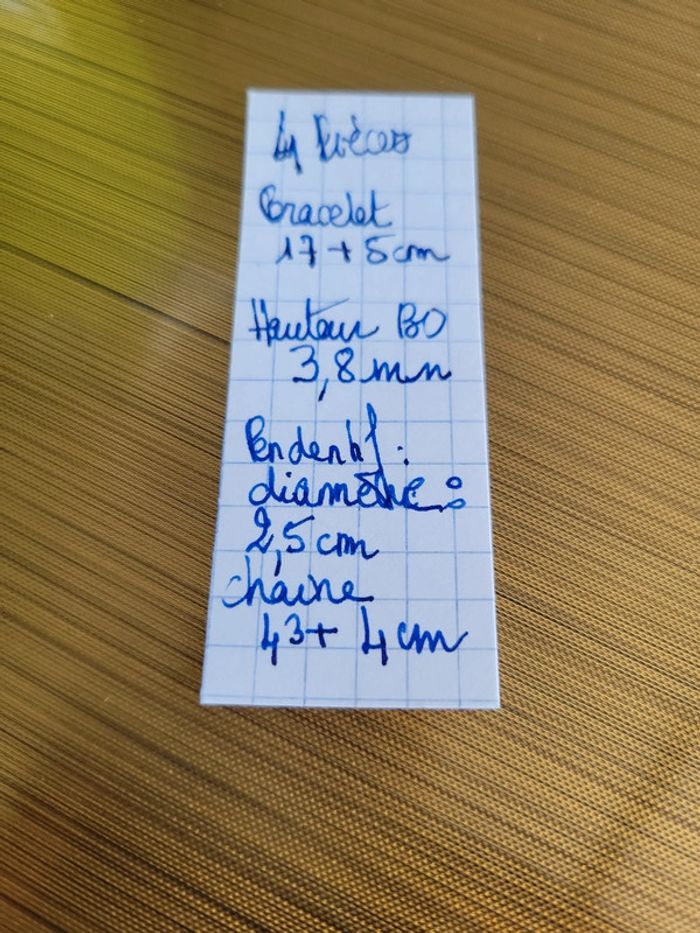 4 Pièces
Bracelet
17 + 5 cm
Hauteur BO
3,8 mm
Pendentif :
diamètre :
2,5 cm
chaîne
43 + 4 cm